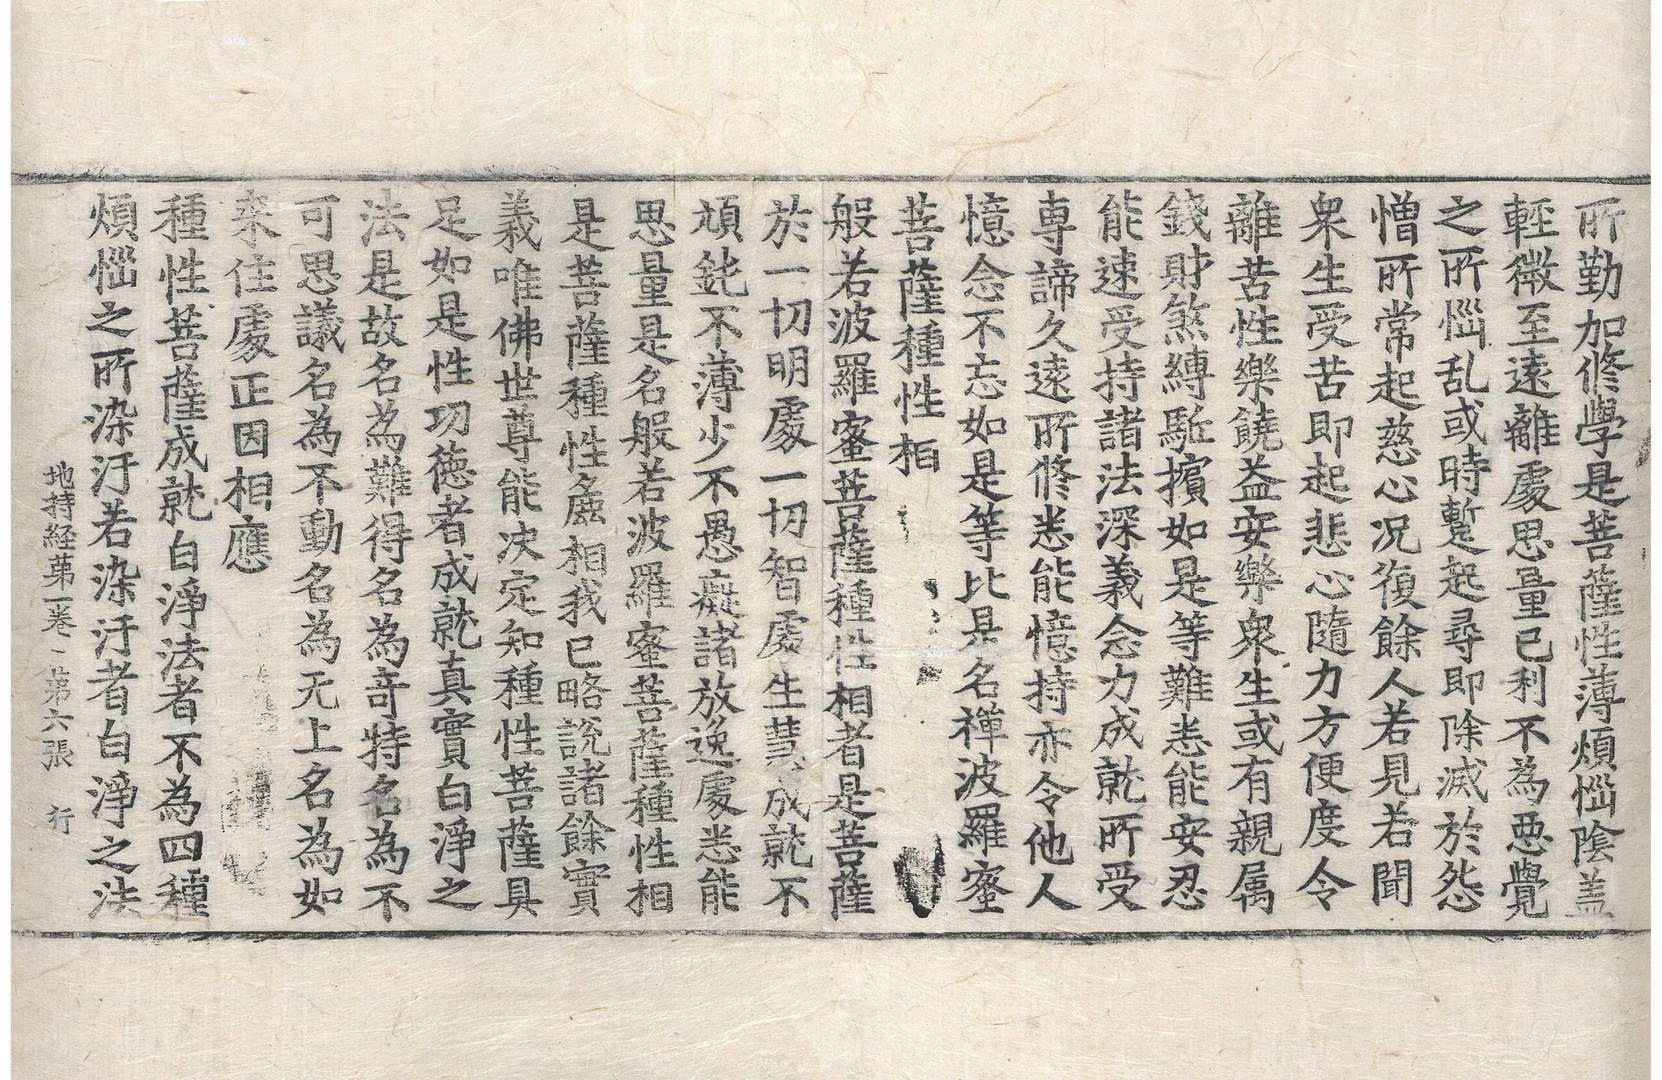 所勤加修學是菩薩性薄煩惱陰盖
輕微至遠離處思量已利不為惡覺
之所惱乱或時蹔起尋即除滅於怨
憎所常起慈心况復餘人若見若聞
衆生受苦即起悲心隨力方便度令
離苦性樂饒益安樂衆生或有親属
錢財煞縛駈擯如是等難悉能安忍
能速受持諸法深義念力成就所受
専諦久遠所修悉能憶持亦令他人
憶念不忘如是等比是名禪波羅蜜
菩薩種性相
般若波羅蜜菩薩種性相者是菩薩
於一切明處一切智處生慧成就不
頑鈍不薄少不愚癡諸放逸處悉能
思量是名般若波羅蜜菩薩種性相
是菩薩種性麁相我已略說諸餘實
義唯佛世尊能决定知種性菩薩具
足如是性功德者成就真實白淨之
法是故名為難得名為奇特名為不
可思議名為不動名為无上名為如
来住處正因相應
種性菩薩成就白淨法者不為四種
煩惱之所染汙若染汙者白淨之法
地持経苐一卷 第六張 行